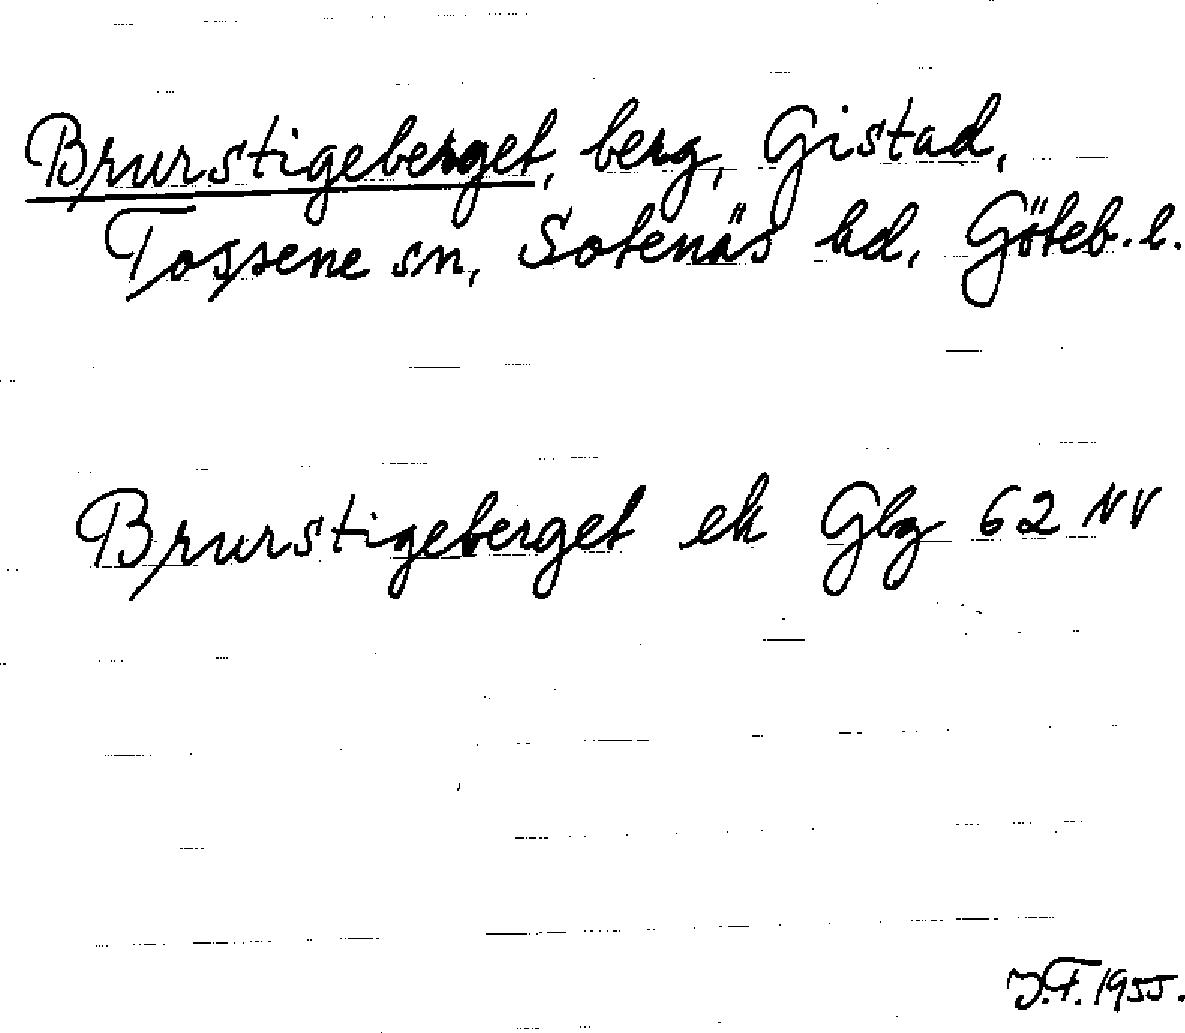 Brurstigeberget, berg, Gistad,
Tossene sn, Sotenäs hd, Göteb. l.
Brurstigeberget ek Gbg 62 NV
J.F. 1955.